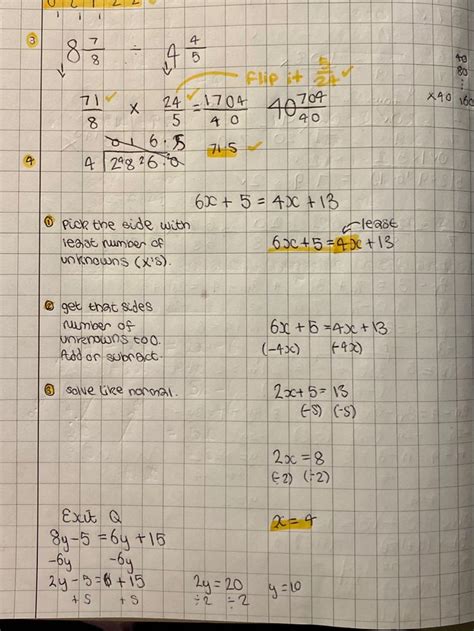 3
8 7/8 ÷ 4 4/5
flip it 5/24 ✓
71/8 ✓ × 24/5 ✓ = 1704/40 40 704/40
40
80
×40 160
0 1 6 . 5
4 4 2⁴8²6.²0 71.5 ✓
6x + 5 = 4x + 13
least
① Pick the side with
least number of
unknowns (x's).
6x + 5 = 4x + 13
② get that sides
number of
unknowns to 0.
Add or subract.
6x + 5 = 4x + 13
(-4x) (-4x)
③ solve like normal.
2x + 5 = 13
(-5) (-5)
2x = 8
(÷2) (÷2)
x = 4
Exit Q
8y - 5 = 6y + 15
-6y -6y
2y - 5 = 6 + 15 2y = 20 y = 10
+5 +5 ÷2 ÷2